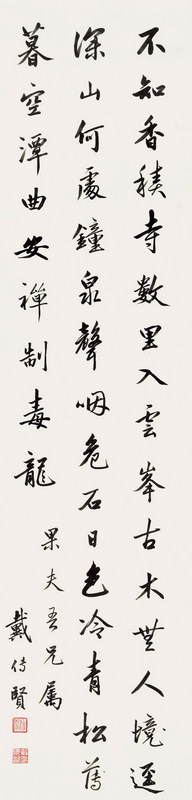 不知香積寺數里入雲峯古木無人境逕
深山何處鐘泉聲咽危石日色冷青松薄
暮空潭曲安禪制毒龍
果夫吾兄属
戴傳賢